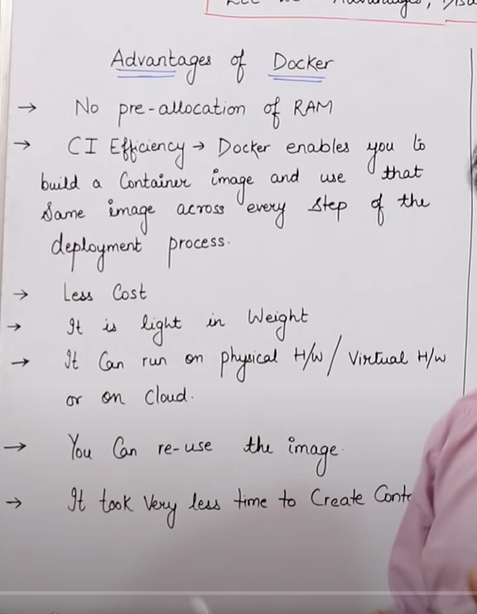 Advantages of Docker
→ No pre-allocation of RAM
→ CI Efficiency → Docker enables you to
build a Container image and use that
Same image across every step of the
deployment process.
→ Less Cost
→ It is light in Weight
→ It Can run on physical H/w / Virtual H/w
or on Cloud.
→ You Can re-use the image.
→ It took Very less time to Create